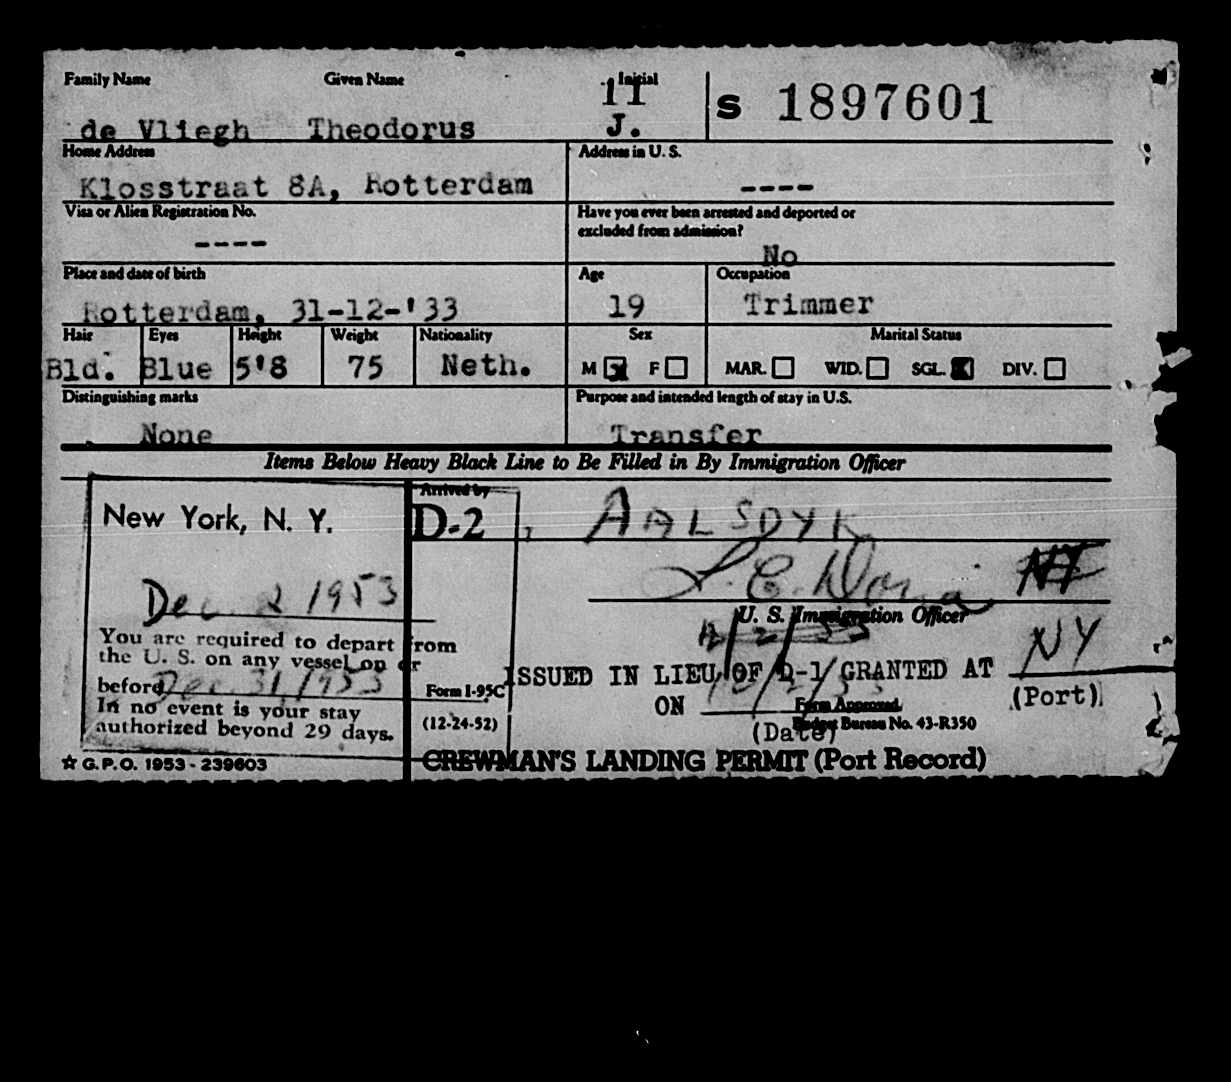 Family Name Given Name Initial 11 S 1897601
de Vliegh Theodorus J.
Home Address Address in U. S.
Klosstraat 8A, Rotterdam ----
Visa or Alien Registration No. Have you ever been arrested and deported or
excluded from admission?
---- No
Place and date of birth Age Occupation
Rotterdam, 31-12-'33 19 Trimmer
Hair Eyes Height Weight Nationality Sex Marital Status
Bld. Blue 5'8 75 Neth. M F MAR. WID. SGL. DIV.
Distinguishing marks Purpose and intended length of stay in U.S.
None Transfer
Items Below Heavy Black Line to Be Filled in By Immigration Officer
Arrived by
New York, N. Y. D-2 AALSDYK
NY
Dec. 2 1953
U. S. Immigration Officer
12/2/53
You are required to depart from
the U. S. on any vessel on or
before Dec. 31/1953
In no event is your stay
authorized beyond 29 days.
Form I-95C
(12-24-52)
ISSUED IN LIEU OF D-1 GRANTED AT NY
(Port)
ON 12/2/53
(Date)
Form Approved
Budget Bureau No. 43-R350
☆ G.P.O. 1953 - 239603 CREWMAN'S LANDING PERMIT (Port Record)